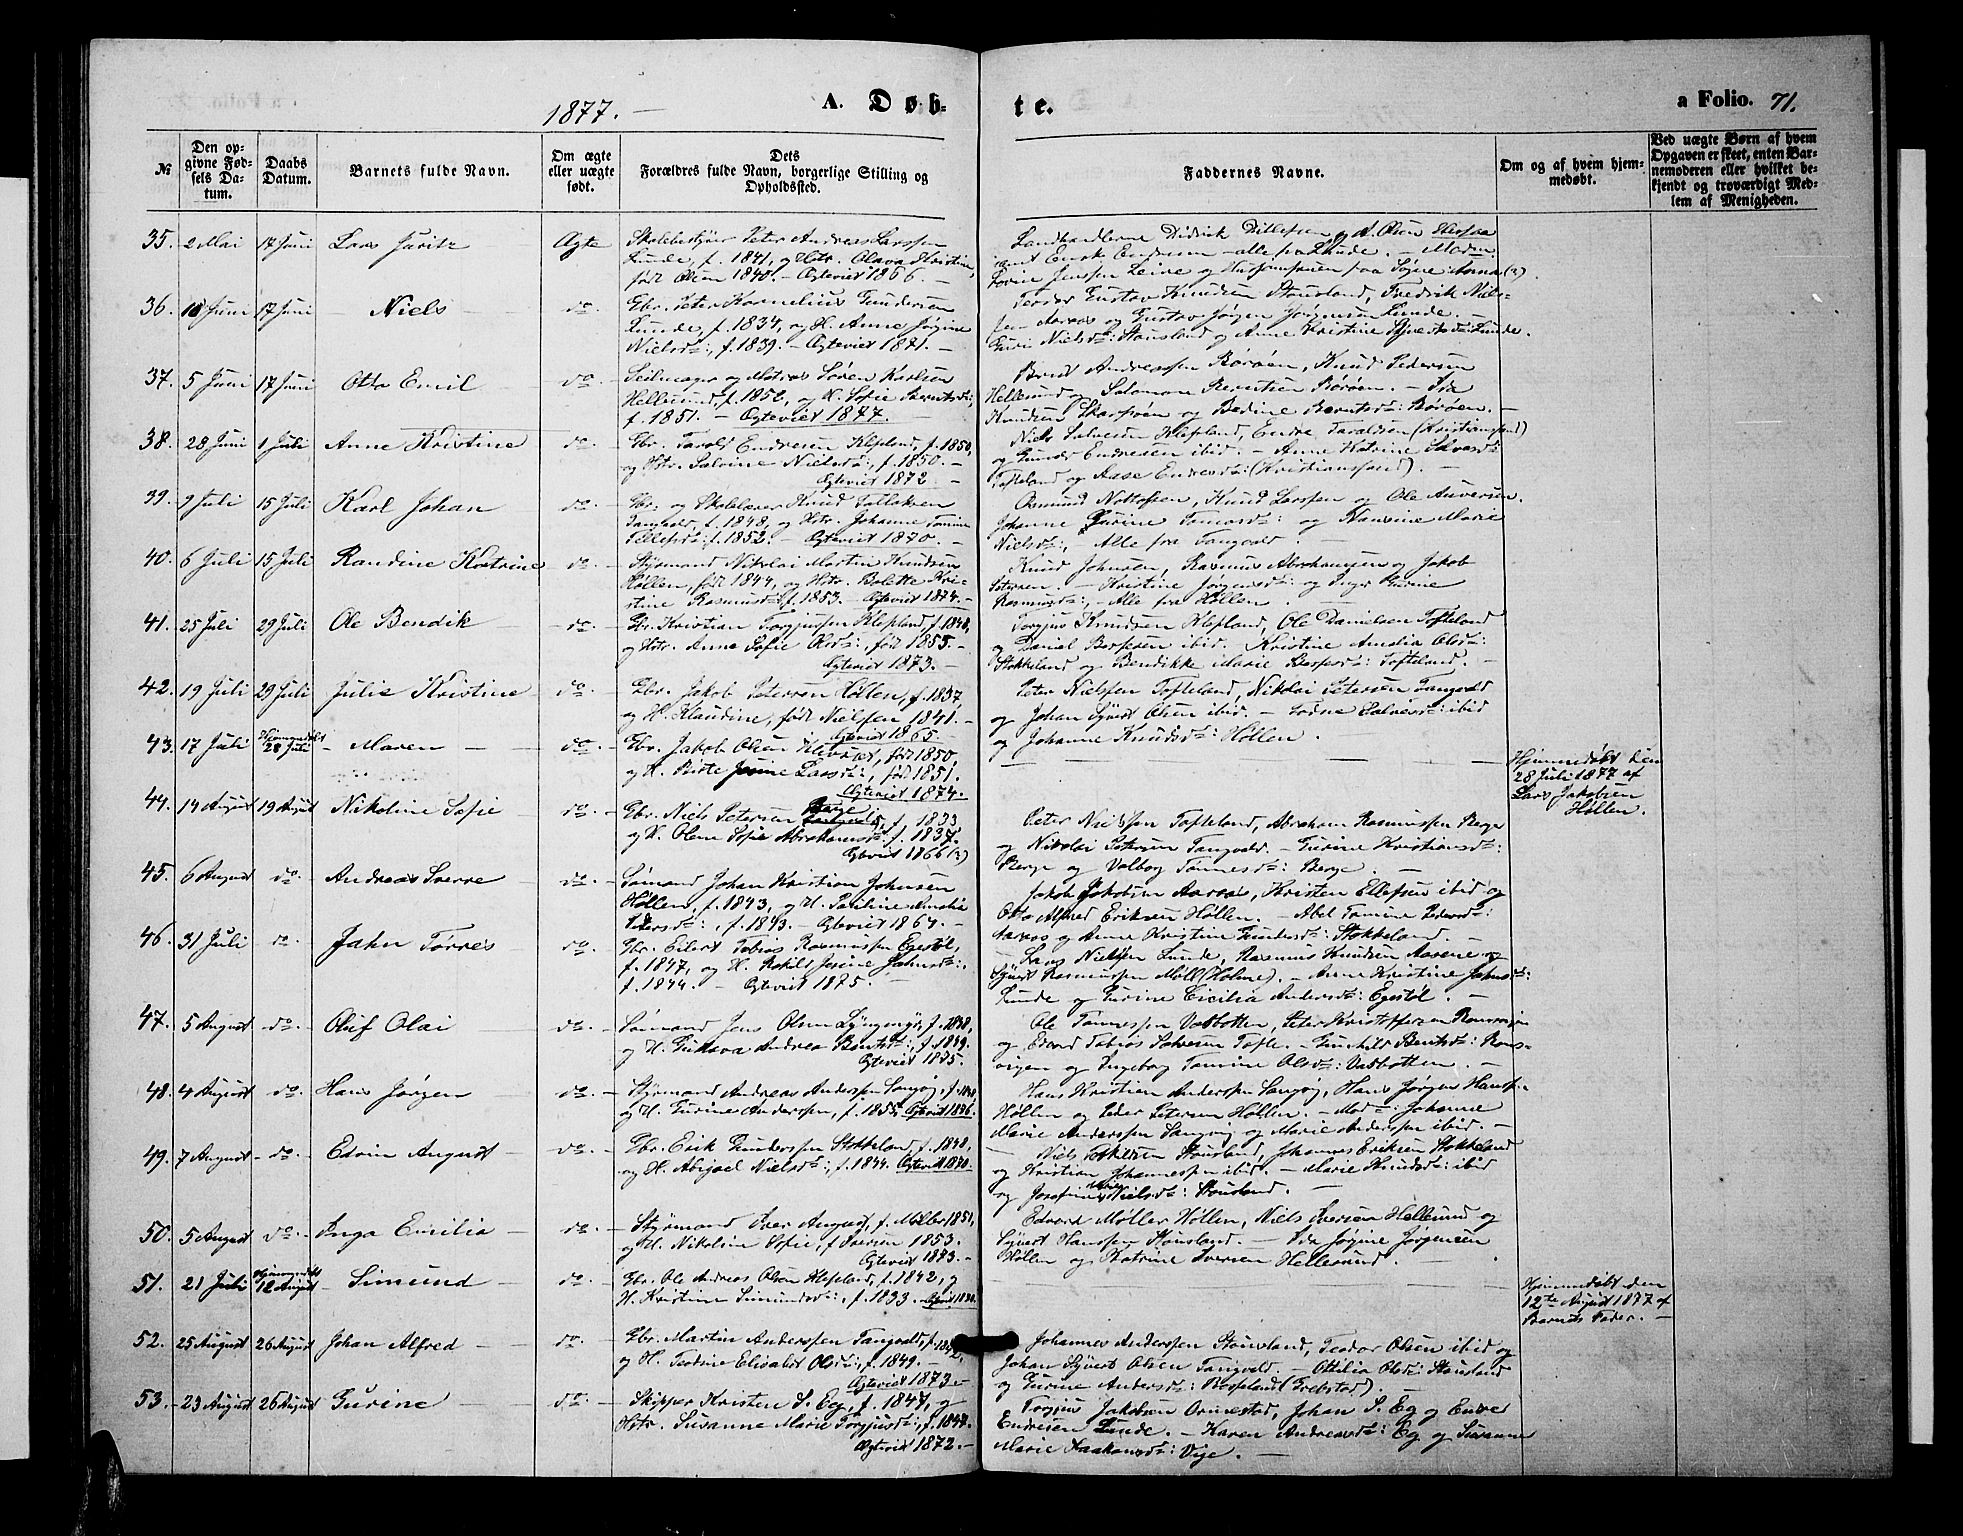 1877. — A. Døb-
te.
a Folio. 71.
№
Den op-
givne Fød-
sels Da-
tum.
Daabs
Datum.
Barnets fulde Navn.
Om ægte
eller uægte
født.
Dets
Forældres fulde Navn, borgerlige Stilling og
Opholdssted.
Faddernes Navne.
Om og af hvem hjem-
medøbt.
Ved uægte Børn af hvem
Opgaven er skeet, enten Bar-
nemoderen eller hvilket be-
kjendt og troværdigt Med-
lem af Menigheden.
35. 2 Mai 17 Juni Lars Juritz Ægte
Skolebestyrer Peter Andreas Larssen
Lunde, f. 1841, og Hstr. Olava Kristine,
født Olsen 1840. — Egteviet 1866. —
Landhandlerne Didrik Ditlefsen og A. Olsen
samt Enok Endresen — alle fra Lunde. — Madm.
36. Juni 17 Juni — Niels — do. —
Gbr. Peter Kornelius Gundersen
Lunde, f. 1834, og H. Anne Jørgine
Nielsd:, f. 1839. — Egteviet 1871. —
Teodor Gustav Knudsen Stousland, Fredrik Niels-
sen Aaros og Gustav Jørgen Jørgensen Lunde. —
Guri Nielsd: Stousland og Anne Kristine Lunde.
37. 5 Juni 17 Juni Otto Emil — do —
Seilmager og Matros Søren Karlsen
Hellesund, f. 1852, og H. Sofie Berntsd:,
f. 1851. — Egteviet 1877.
Bernt Andreassen Borøen, Knud Pedersen
Hellesund og Salomon Berntsen Borøen. — Ida
Knudsen Skarpøen og Bedine Berntsd: Borøen. —
38. 28 Juni 1 Juli Anne Kristine do. —
Gbr. Tarald Endresen Klepland, f. 1850,
og Hstr. Salvine Nielsd:, f. 1850. —
Egteviet 1872. —
Niels Salvesen Klepland, Endre Taraldsen (Kristianssand)
og Gunder Endresen ibid. — Anne Katrine Salvesd:
Tofteland og Aase Endresd: (Kristianssand). —
39. 9 Juli 15 Juli Karl Johan — do —
Gbr. og Skolelærer Knud Tallaksen
Tangvald, f. 1848, og Hstr. Johanne Tomine
Tellefsd: f. 1852. — Egteviet 1870. —
Osmund Nottosen, Knud Larssen og Ole Anversen.
Johanne Gurine Tomasd: og Nansine Marie
Nielsd:, — Alle fra Tangvald. —
40. 6 Juli 15 Juli Randine Katrine do. —
Styrmand Nikolai Martin Knudsen
Høllen, født 1844, og Hstr. Bolette Kri-
stine Rasmusd:, f. 1853. — Egteviet 1874. —
Knud Johnsen, Rasmus Abrahamsen og Jakob
Petersen. — Kristine Jørgensd: og Inger Gurine
Rasmusd:, — Alle fra Høllen. —
41. 25 Juli 29 Juli Ole Bendik — do —
Gbr. Kristian Torgjussen Klepland, f. 1848,
og Hstr. Anne Sofie Olsd:, født 1855. —
Egteviet 1873. —
Torgjus Knudsen Klepland, Ole Danielsen Tofteland
og Daniel Bespesen ibid. Kristine Amalia Olsd:
Stokkeland og Bendikke Marie Bespesd: Tofteland. —
42. 19 Juli 29 Juli Julie Kristine — do. —
Gbr. Jakob Petersen Høllen, f. 1837,
og H. Klaudine, født Nielsen 1841. —
Egteviet 1865. —
Peter Nielsen Tofteland, Nikolai Petersen Tangvald
og Johan Syvert Olsen ibid. — Salvesd: ibid
og Johanne Knudsd: Høllen. —
43. 17 Juli Hjemmedøbt 28 Juli — Maren — do —
Gbr. Jakob Olsen, født 1850,
og H. Birte Josine Larsd:, født 1851.
Egteviet 1874.
Hjemmedøbt den
28 Juli 1877 af
Lars Jakobsen
Høllen.
44. 14 August 19 August Nikoline Sofie — do. —
Gbr. Niels Petersen Berge, f. 1833
og H. Olene Sofie Abrahamsd: f. 1837.
Egteviet 1866 (?)
Peter Nielsen Tofteland, Abraham Rasmussen Berge
og Nikolai Petersen Tangvald. — Gurine Kristiansd:
Berge og Valbog Tønnesd: Berge. —
45. 6 August do — Andreas Sverre — do. —
Sømand Johan Kristian Johnsen
Høllen, f. 1843, og H. Pauline Amalie
Petersd:, f. 1843. — Egteviet 1864. —
Jakob Jakobsen Aaros, Kristen Ellefsen ibid og
Otto Alfred Eriksen Høllen. — Abel Tomine Pedersd:
Aaros og Anne Kristine Gundersd: Stokkeland. —
46. 31 Juli do. Jahn Tørres do
Gbr. Eilert Tobias Rasmussen Egestøl,
f. 1847, og H. Rakild Josine Jahnsd:,
f. 1844. — Egteviet 1875. —
Lars Nielsen Lunde, Rasmus Knudsen Aasene og
Syvert Rasmussen Møll (Holme). — Anne Kristine Jahnsd:
Lunde og Gurine Cicilia Andersd: Egestøl. —
47. 5 August — do — Oluf Olai — do —
Sømand Jens Olsen Lyngmyr, f. 1848,
og H. Gustava Andrea Berntsd:, f. 1849.
Egteviet 1875.
Ole Tønnessen Vatbotten, Peter Kristoffersen
og Edvard Tobias Salvesen Tofte. — Gunhild Berntsd:
vigen og Ingeborg Tomine Olsd: Vatbotten. —
48. 4 August do. Hans Jørgen — do. —
Styrmand Andreas Anderssen Langøy, f.
og H. Gurine Anderssen, f. 1855, Egteviet 1876.
Hans Kristian Anderssen Langøy, Hans Jørgen Hanss.
Høllen og Peder Petersen Høllen. — Johanne
Marie Anderssen Langøy og Marie Anderssen ibid. —
49. 7 August — do — Edvin August — do. —
Gbr. Erik Gunderssen Stokkeland, f. 1848,
og H. Abigael Nielsd:, f. 1844. Egteviet 1870.
Niels Stousland, Johannes Eriksen Stokkeland
og Kristian Johannessen ibid. — Marie Knudsd: ibid
og Josefine Marie Nielsd: Stousland. —
50. 5 August do. — Inga Emilia — do. —
Styrmand Iver August, f. Møller 1851,
og H. Nikoline Sofie, f. Iversen 1853.
Egteviet 1873. —
Edvard Møller Høllen, Niels Iversen Hellesund og
Syvert Hanssen Stousland. — Ida Jørgine Jørgensen
Høllen og Katrine Iversen Hellesund. —
51. 21 Juli Hjemmedøbt 12 August — Simund — do. —
Gbr. Ole Andreas Olsen Klepland, f. 1842, og
H. Kristine Simundsd:, f. 1833. — Egteviet
Hjemmedøbt den
12te August 1877 af
Barnets Fader. —
52. 25 August 26 August Johan Alfred — do. —
Gbr. Martin Anderssen Tangvald, f.
og H. Teodine Elisabet Olsd:, f. 1849. —
Egteviet 1873. —
Johannes Anderssen Stousland, Teodor Olsen ibid og
Johan Syvert Olsen Tangvald. — Ottilia Olsd: Stousland
og Gurine Andersd: (Grebstad). —
53. — 23 August 26 August Gurine — do —
Skipper Kristen S. Eg, f. 1847, og
Hstr. Susanne Marie Torgjusd:, f. 1848.
Egteviet 1872. —
Torgjus Jakobsen Ormestad, Johan S. Eg og Endre
Endresen Lunde. — Karen Andreasd: Eg og Susanne
Marie Haakonsd: Vige. —